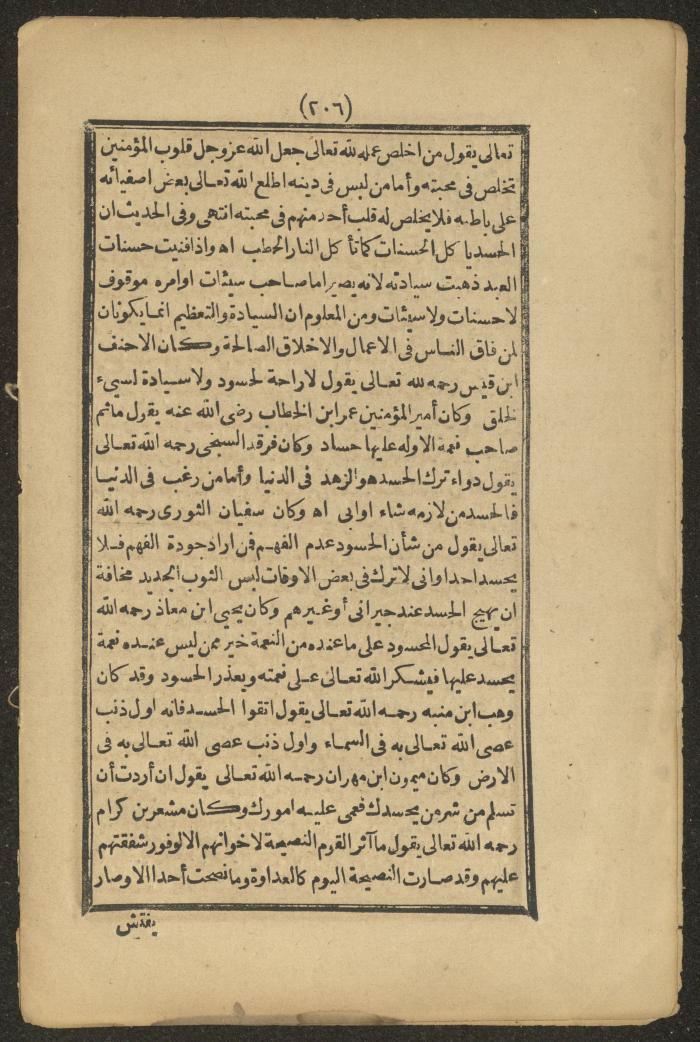 (٢٠٦)
تعالى يقول من اخلص عمله لله تعالى جعل الله عز وجل قلوب المؤمنين
تخلص فى محبته وأما من ليس فى دينه اطلع الله تعالى بعض اصفيائه
على باطنه فلا يخلص له قلب أحد منهم فى محبته انتهى وفى الحديث ان
الحسد يا كل الحسنات كما تأ كل النار الحطب اه واذا فنيت حسنات
العبد ذهبت سيادته لانه يصير اما صاحب سيئات اوامره موقوف
لا حسنات ولا سيئات ومن المعلوم ان السيادة والتعظيم انما يكونان
لمن فاق الناس فى الاعمال والاخلاق الصالحة وكان الاحنف
ابن قيس رحمه لله تعالى يقول لا راحة لحسود ولا سيادة لسيىء
لخلق وكان أمير المؤمنين عمر ابن الخطاب رضى الله عنه يقول ما ثم
صاحب نعمة الا وله عليها حساد وكان فرقد السبخى رحمه الله تعالى
يقول دواء ترك الحسد هو الزهد فى الدنيا وأما من رغب فى الدنيا
فالحسد من لازمه شاء او ابى اه وكان سفيان الثورى رحمه الله
تعالى يقول من شأن الحسود عدم الفهم فمن اراد جودة الفهم فلا
يحسد احدا وانى لا ترك فى بعض الاوقات لبس الثوب الجديد مخافة
ان يهيج الحسد عند جيرانى أو غيرهم وكان يحيى ابن معاذ رحمه الله
تعالى يقول المحسود على ما عنده من النعمة خير ممن ليس عنده نعمة
يحسد عليها فيشكر الله تعالى على نعمته ويعذر الحسود وقد كان
وهب ابن منبه رحمه الله تعالى يقول اتقوا الحسد فانه اول ذنب
عصى الله تعالى به فى السماء واول ذنب عصى الله تعالى به فى
الارض وكان ميمون ابن مهران رحمه الله تعالى يقول ان أردت أن
تسلم من شر من يحسدك فعمى عليه امورك وكان مشعر بن كرام
رحمه الله تعالى يقول ما آثر القوم النصيحة لاخوانهم الا لوفور شفقتهم
عليهم وقد صارت النصيحة اليوم كالعداوة وما نصحت أحدا الا وصار
يفتش